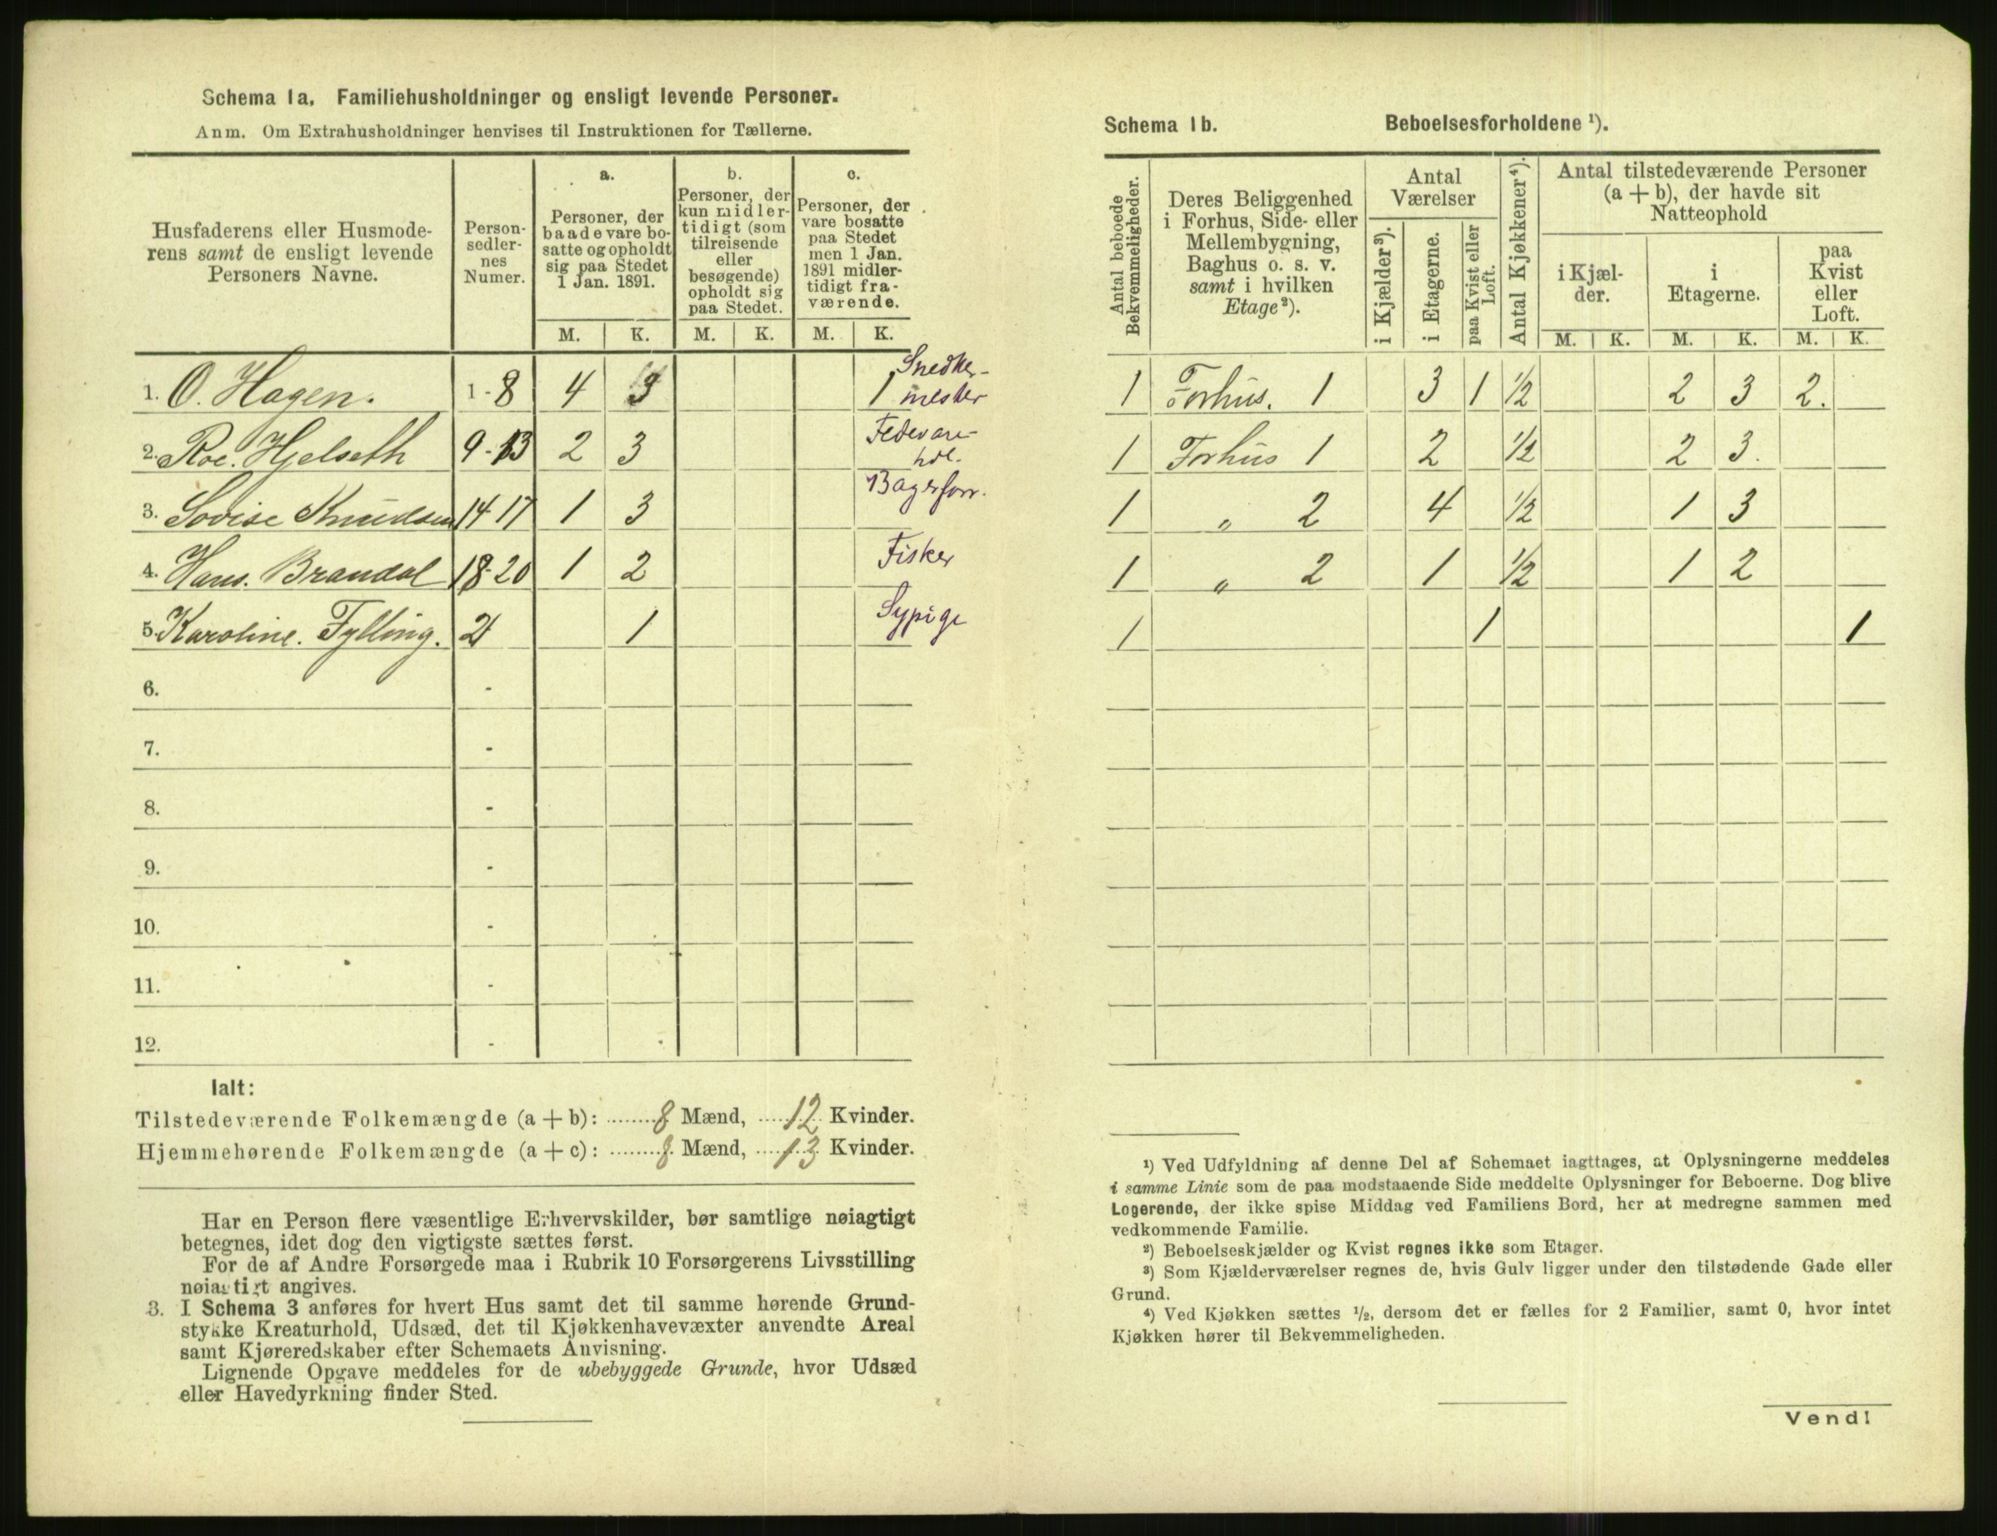 Schema 1a. Familiehusholdninger og ensligt levende Personer.
Anm. Om Extrahusholdninger henvises til Instruktionen for Tællerne.
Husfaderens eller Husmoderens samt de ensligt levende Personers Navne.
Personsedlernes Numer.
a. Personer, der baade vare bosatte og opholdt sig paa Stedet 1 Jan. 1891.
b. Personer, der kun midlertidigt (som tilreisende eller besøgende) opholdt sig paa Stedet.
c. Personer, der vare bosatte paa Stedet men 1 Jan. 1891 midlertidigt fraværende.
M. K. M. K. M. K.
1. O. Hagen. 1 - 8 4 3 1 Snedkermester
2. Roe. Hjelseth 9 - 13 2 3 Fedevarehdl.
3. Lovise Knudsen 14 17 1 3 Bagerforr.
4. Hans. Brandal 18 - 20 1 2 Fisker
5. Karoline. Fylling. 21 1 Sypige
6. -
7. -
8. -
9. -
10. -
11. -
12. -
Ialt:
Tilstedeværende Folkemængde (a + b): 8 Mænd, 12 Kvinder.
Hjemmehørende Folkemængde (a + c): 8 Mænd, 13 Kvinder.
Har en Person flere væsentlige Erhvervskilder, bør samtlige nøiagtigt
betegnes, idet dog den vigtigste sættes først.
For de af Andre Forsørgede maa i Rubrik 10 Forsørgerens Livsstilling
nøiagtigt angives.
3. I Schema 3 anføres for hvert Hus samt det til samme hørende Grund-
stykke Kreaturhold, Udsæd, det til Kjøkkenhavevæxter anvendte Areal
samt Kjøreredskaber efter Schemaets Anvisning.
Lignende Opgave meddeles for de ubebyggede Grunde, hvor Udsæd
eller Havedyrkning finder Sted.
Schema 1b. Beboelsesforholdene ¹).
Antal beboede Bekvemmeligheder.
Deres Beliggenhed i Forhus, Side- eller Mellembygning, Baghus o. s. v. samt i hvilken Etage²).
Antal Værelser
i Kjælder³).
i Etagerne.
paa Kvist eller Loft.
Antal Kjøkkener⁴).
Antal tilstedeværende Personer (a + b), der havde sit Natteophold
i Kjælder.
i Etagerne.
paa Kvist eller Loft.
M. K. M. K. M. K.
1 Forhus. 1 3 1 ½ 2 3 2.
1 Forhus 1 2 ½ 2 3.
1 " 2 4 ½ 1 3
1 " 2 1 ½ 1 2
1 1 1
¹) Ved Udfyldning af denne Del af Schemaet iagttages, at Oplysningerne meddeles
i samme Linie som de paa modstaaende Side meddelte Oplysninger for Beboerne. Dog blive
Logerende, der ikke spise Middag ved Familiens Bord, her at medregne sammen med
vedkommende Familie.
²) Beboelseskjælder og Kvist regnes ikke som Etager.
³) Som Kjælderværelser regnes de, hvis Gulv ligger under den tilstødende Gade eller
Grund.
⁴) Ved Kjøkken sættes ½, dersom det er fælles for 2 Familier, samt 0, hvor intet
Kjøkken hører til Bekvemmeligheden.
Vend!